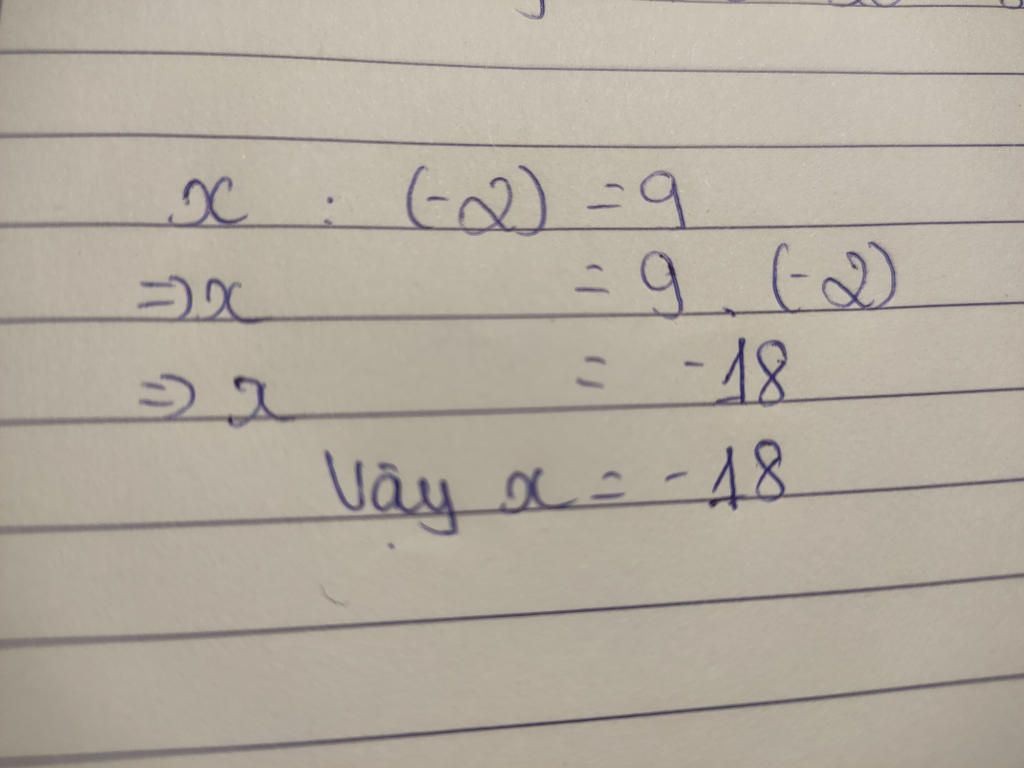 x : (-2) = 9
=> x = 9 . (-2)
=> x = -18
Vậy x = -18